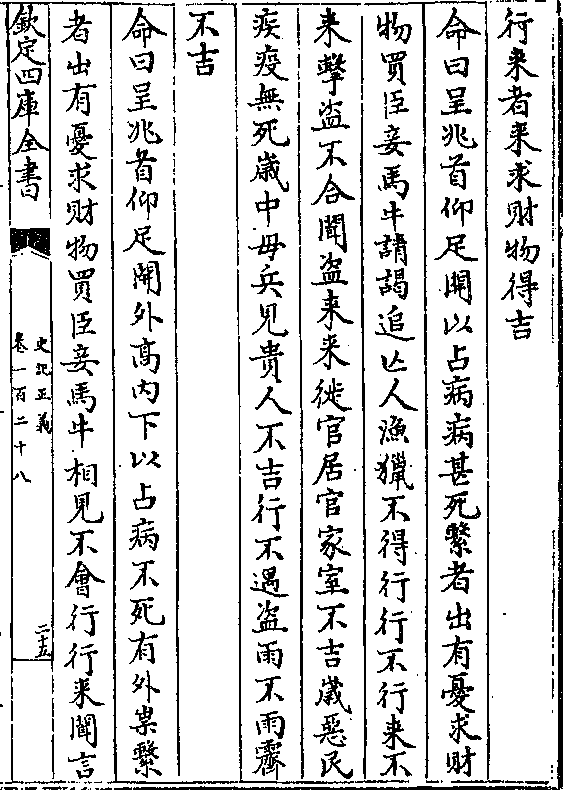 行来者来求財物得吉
命曰呈兆首仰足開以占病病甚死繫者出有憂求財
物買臣妾馬牛請謁追亡人漁獵不得行行不行来不
来擊盗不合聞盗来来徙官居官家室不吉嵗惡民
疾疫無死嵗中毋兵見貴人不吉行不遇盗雨不雨霽
不吉
命曰呈兆首仰足開外髙内下以占病不死有外祟繫
者出有憂求財物買臣妾馬牛相見不會行行来聞言
欽定四庫全書
史記正義
卷一百二十八
二十五